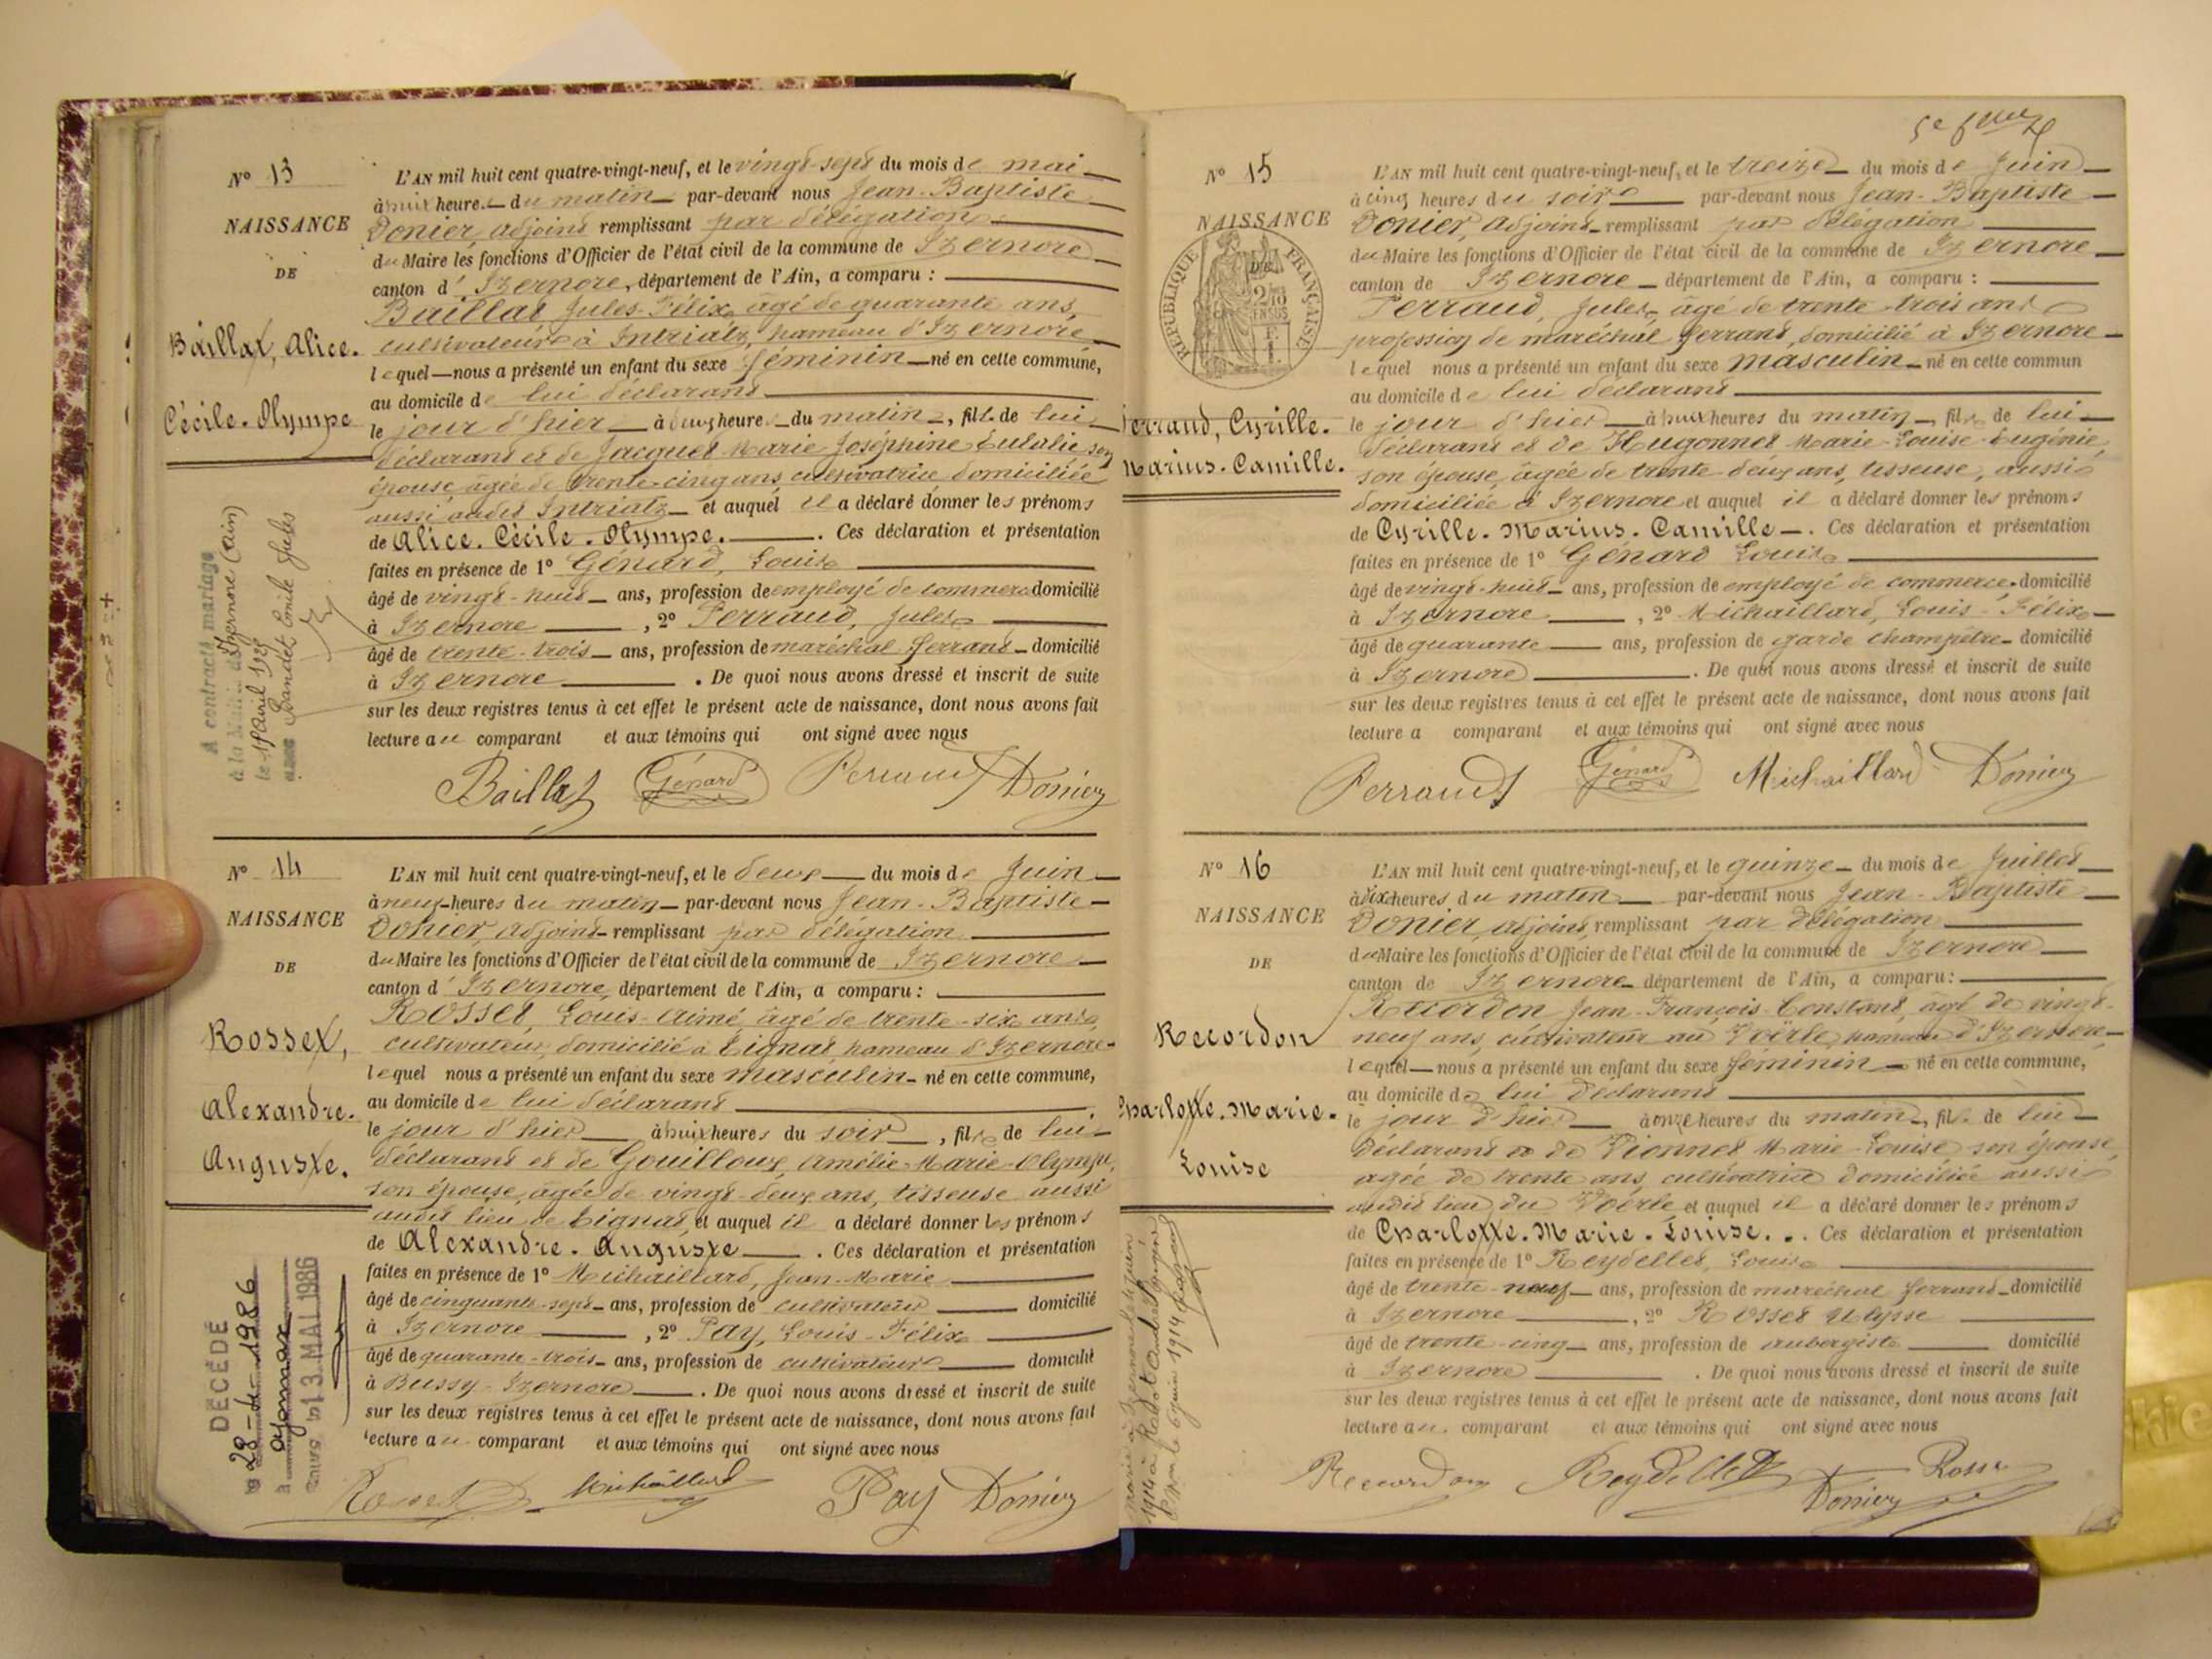 Nº 13
NAISSANCE
DE
Baillat, Alice.
Cécile. Olympe
L'AN mil huit cent quatre-vingt-neuf, et le vingt-sept du mois de mai
à huit heures du matin par-devant nous Jean-Baptiste
Donier, adjoint remplissant par délégation
du Maire les fonctions d'Officier de l'état civil de la commune de Izernore
canton d'Izernore, département de l'Ain, a comparu :
Baillat Jules-Félix, âgé de quarante ans,
cultivateur à Intriatz, hameau d'Izernore
lequel nous a présenté un enfant du sexe féminin né en cette commune,
au domicile de lui déclarant
le jour d'hier à heure du matin, fille de lui
déclarant et de Jacquet Marie Joséphine Eulalie son
épouse âgée de trente-cinq ans cultivatrice domiciliée
aussi audit Intriatz et auquel il a déclaré donner les prénoms
de Alice. Cécile. Olympe. . Ces déclaration et présentation
faites en présence de 1º Génard, Louis
âgé de vingt-huit ans, profession de employé de commerce domicilié
à Izernore , 2º Perraud, Jules
âgé de trente-trois ans, profession de maréchal ferrant domicilié
à Izernore . De quoi nous avons dressé et inscrit de suite
sur les deux registres tenus à cet effet le présent acte de naissance, dont nous avons fait
lecture au comparant et aux témoins qui ont signé avec nous
Baillat Génard Perraud Donier
A contracté mariage
à la Mairie d'Izernore (Ain)
le avril
avec Emile Jules
Nº 14
NAISSANCE
DE
Rosset,
Alexandre.
Auguste.
L'AN mil huit cent quatre-vingt-neuf, et le deux du mois de Juin
à neuf heures du matin par-devant nous Jean-Baptiste
Donier, adjoint remplissant par délégation
du Maire les fonctions d'Officier de l'état civil de la commune de Izernore
canton d'Izernore, département de l'Ain, a comparu :
Rosset, Louis-Aimé, âgé de trente-six ans,
cultivateur, domicilié à Tignat, hameau d'Izernore
lequel nous a présenté un enfant du sexe masculin né en cette commune,
au domicile de lui déclarant
le jour d'hier à huit heures du soir, fils de lui
déclarant et de Gouilloux, Amélie-Marie-Olympe,
son épouse, âgée de vingt-deux ans, tisseuse aussi
audit lieu de Tignat et auquel il a déclaré donner les prénoms
de Alexandre. Auguste . Ces déclaration et présentation
faites en présence de 1º Michaillard, Jean-Marie
âgé de cinquante-sept ans, profession de cultivateur domicilié
à Izernore , 2º Pay, Louis-Félix
âgé de quarante-trois ans, profession de cultivateur domicilié
à Bussy-Izernore . De quoi nous avons dressé et inscrit de suite
sur les deux registres tenus à cet effet le présent acte de naissance, dont nous avons fait
lecture au comparant et aux témoins qui ont signé avec nous
Rosset Michaillard Pay Donier
DÉCÉDÉ
le 28-4-1986
à Oyonnax
13 MAI 1986
5e
Nº 15
NAISSANCE
DE
RÉPUBLIQUE FRANÇAISE
Perraud, Cyrille.
Marius. Camille.
L'AN mil huit cent quatre-vingt-neuf, et le treize du mois de Juin
à cinq heures du soir par-devant nous Jean-Baptiste
Donier, adjoint remplissant par délégation
du Maire les fonctions d'Officier de l'état civil de la commune de Izernore
canton de Izernore département de l'Ain, a comparu :
Perraud, Jules, âgé de trente-trois ans
profession de maréchal ferrant, domicilié à Izernore
lequel nous a présenté un enfant du sexe masculin né en cette commun
au domicile de lui déclarant
le jour d'hier à huit heures du matin, fils de lui
déclarant et de Hugonnet Marie-Louise-Eugénie,
son épouse, âgée de trente deux ans, tisseuse, aussi
domiciliée à Izernore et auquel il a déclaré donner les prénoms
de Cyrille. Marius. Camille . Ces déclaration et présentation
faites en présence de 1º Génard Louis
âgé de vingt-huit ans, profession de employé de commerce domicilié
à Izernore , 2º Michaillard, Louis-Félix
âgé de quarante ans, profession de garde champêtre domicilié
à Izernore . De quoi nous avons dressé et inscrit de suite
sur les deux registres tenus à cet effet le présent acte de naissance, dont nous avons fait
lecture a comparant et aux témoins qui ont signé avec nous
Perraud Génard Michaillard Donier
Nº 16
NAISSANCE
DE
Recordon
Charlotte. Marie.
Louise
L'AN mil huit cent quatre-vingt-neuf, et le quinze du mois de Juillet
à dix heures du matin par-devant nous Jean-Baptiste
Donier, adjoint remplissant par délégation
du Maire les fonctions d'Officier de l'état civil de la commune de Izernore
canton de Izernore département de l'Ain, a comparu :
Recordon Jean-François-Constant, âgé de vingt-
neuf ans, cultivateur au Voërle, hameau d'Izernore
lequel nous a présenté un enfant du sexe féminin né en cette commune,
au domicile de lui déclarant
le jour d'hier à onze heures du matin, fille de lui
déclarant et de Vionnet Marie-Louise son épouse,
âgée de trente ans, cultivatrice domiciliée aussi
audit lieu du Voërle et auquel il a déclaré donner les prénoms
de Charlotte. Marie. Louise. . . Ces déclaration et présentation
faites en présence de 1º Reydellet, Louis
âgé de trente-neuf ans, profession de maréchal ferrant domicilié
à Izernore , 2º Rosset Ulysse
âgé de trente-cinq ans, profession de aubergiste domicilié
à Izernore . De quoi nous avons dressé et inscrit de suite
sur les deux registres tenus à cet effet le présent acte de naissance, dont nous avons fait
lecture au comparant et aux témoins qui ont signé avec nous
Recordon Reydellet Rosset
Donier
mariée à Izernore le six juin
1914 à
le 6 juin 1914